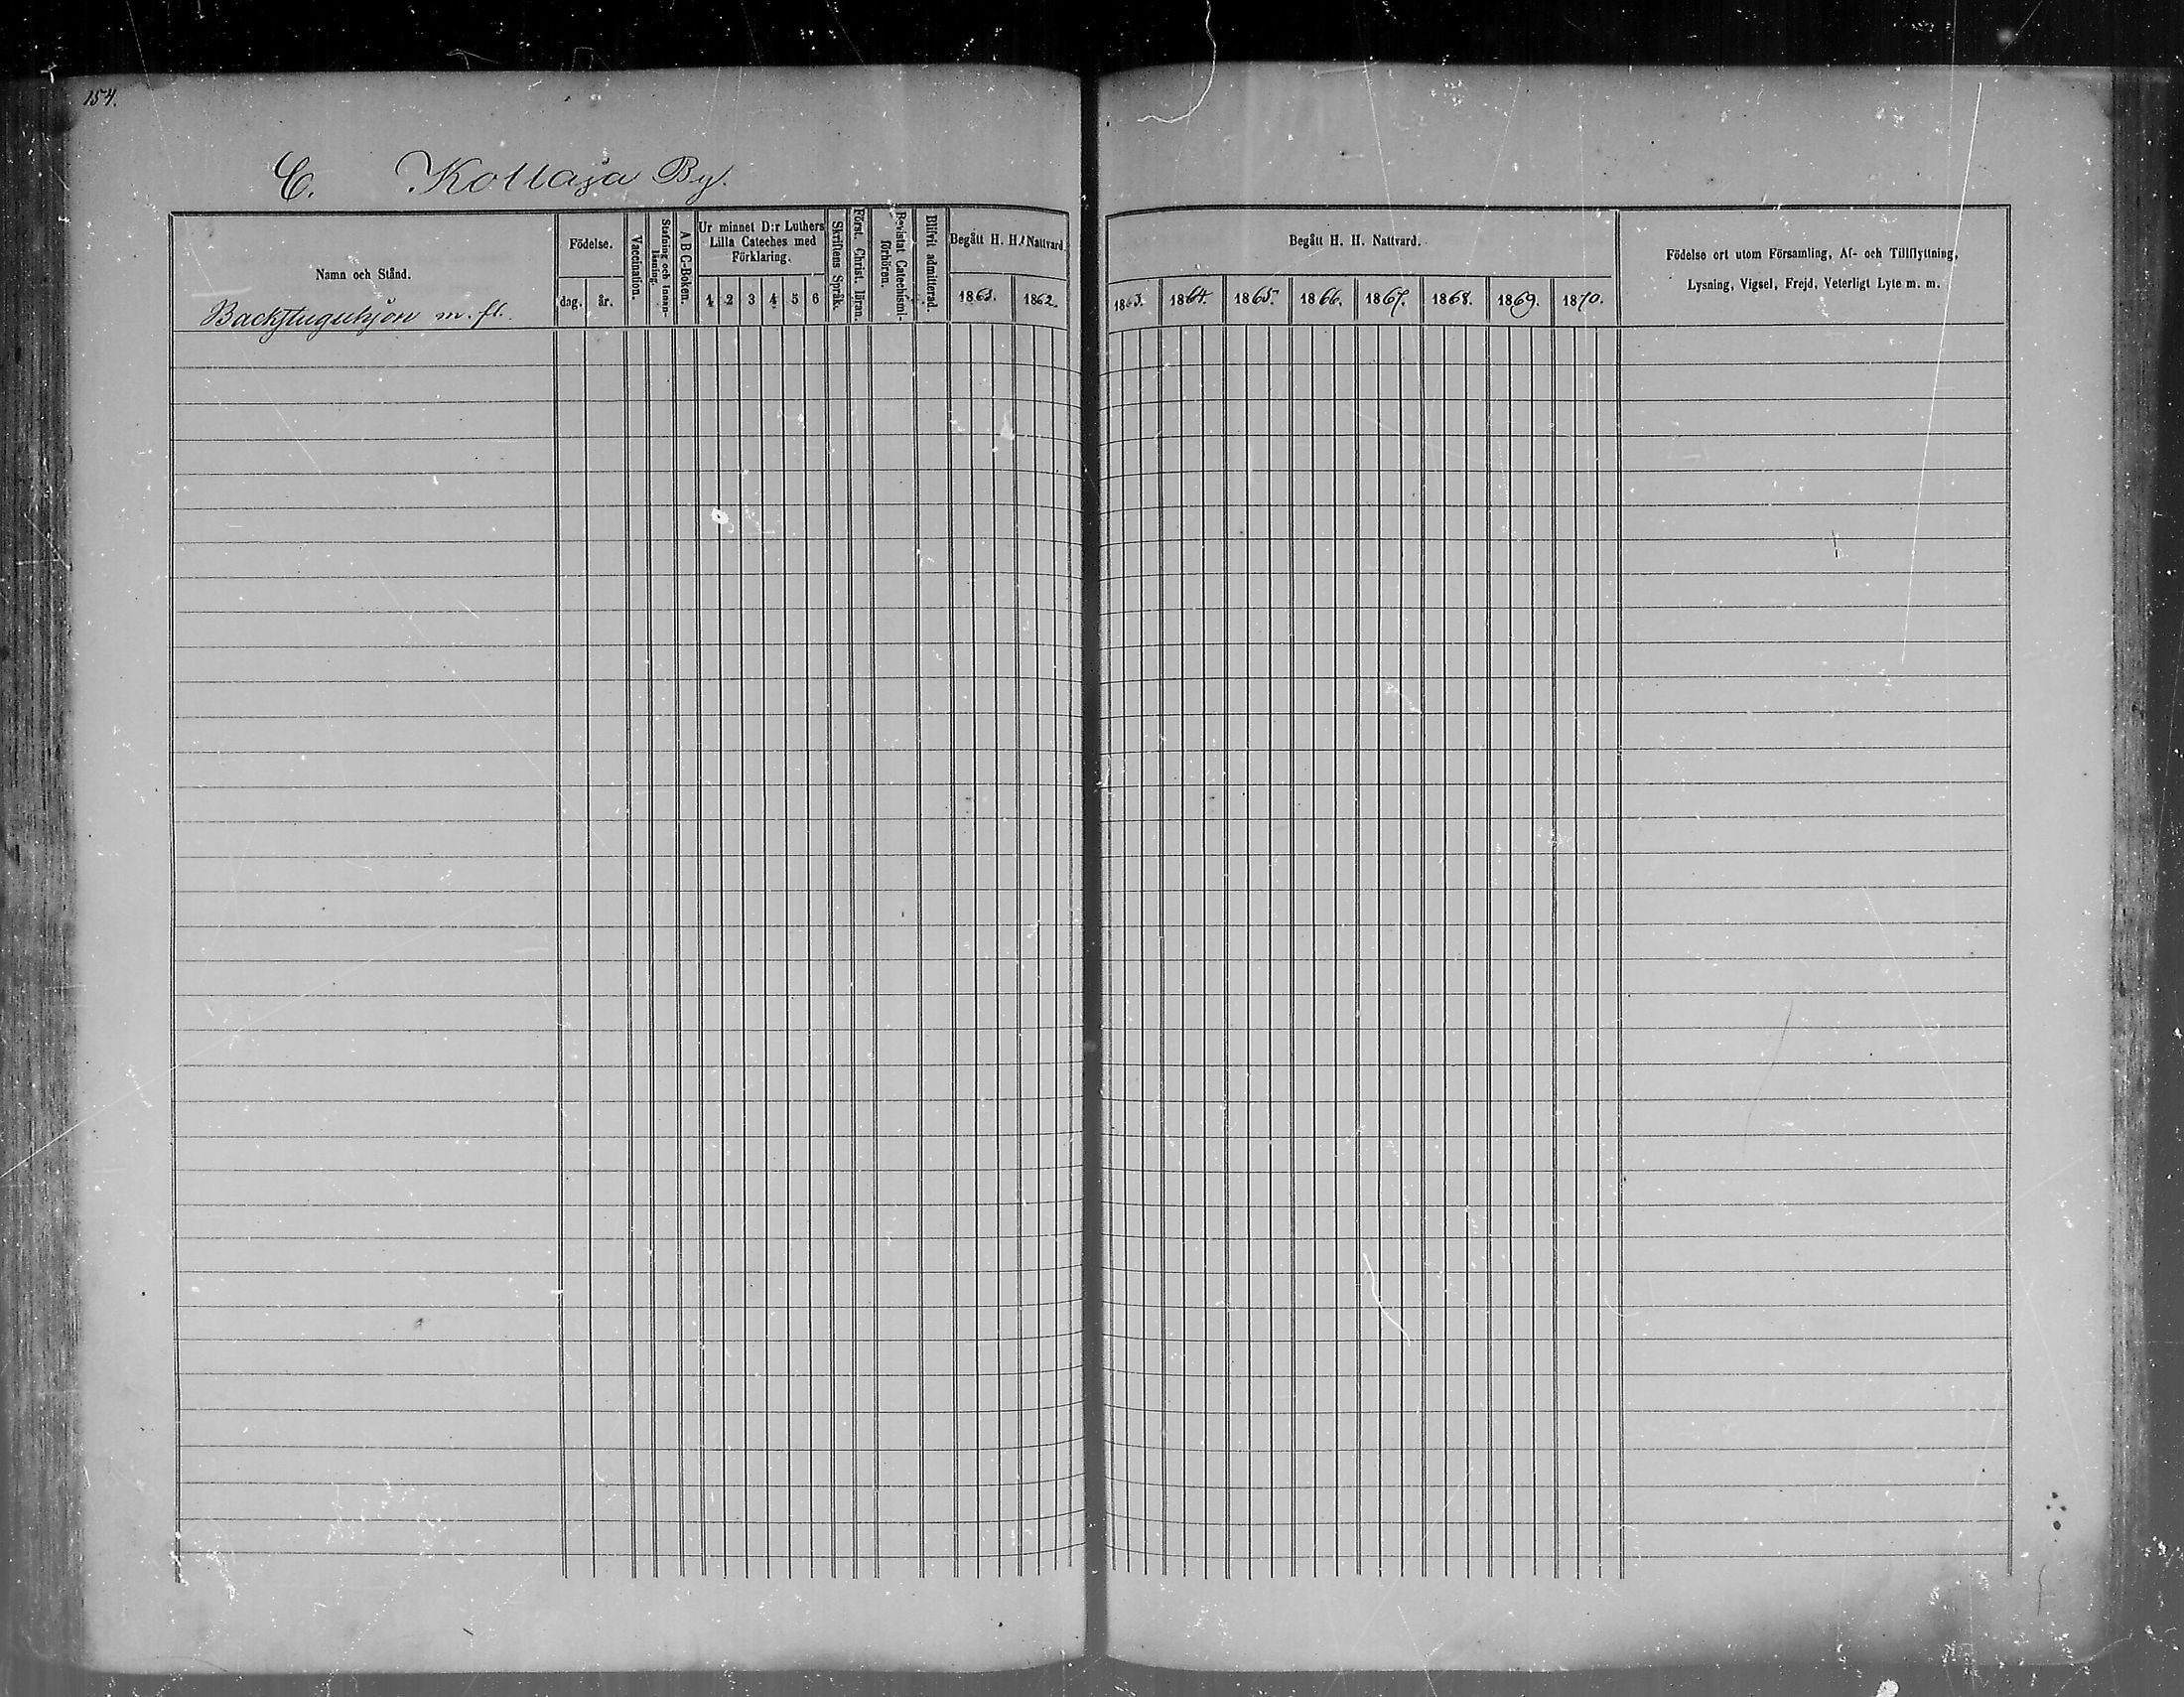 154.
C. Kollaja By.
Namn och Stånd.
Backstuguhjon m. fl.
Födelse.
dag. år.
Vaccination.
Stafning och Innan-
läsning.
A B C-Boken.
Ur minnet D:r Luthers
Lilla Cateches med
Förklaring.
1 2 3 4 5 6
Skriftens Språk.
Först. Christ. läran.
Bevistat Catechismi-
förhören.
Blifvit admitterad.
Begått H. H. Nattvard
1861. 1862.
Begått H. H. Nattvard.
1863. 1864. 1865. 1866. 1867. 1868. 1869. 1870.
Födelse ort utom Församling, Af- och Tillflyttning,
Lysning, Vigsel, Frejd, Veterligt Lyte m. m.